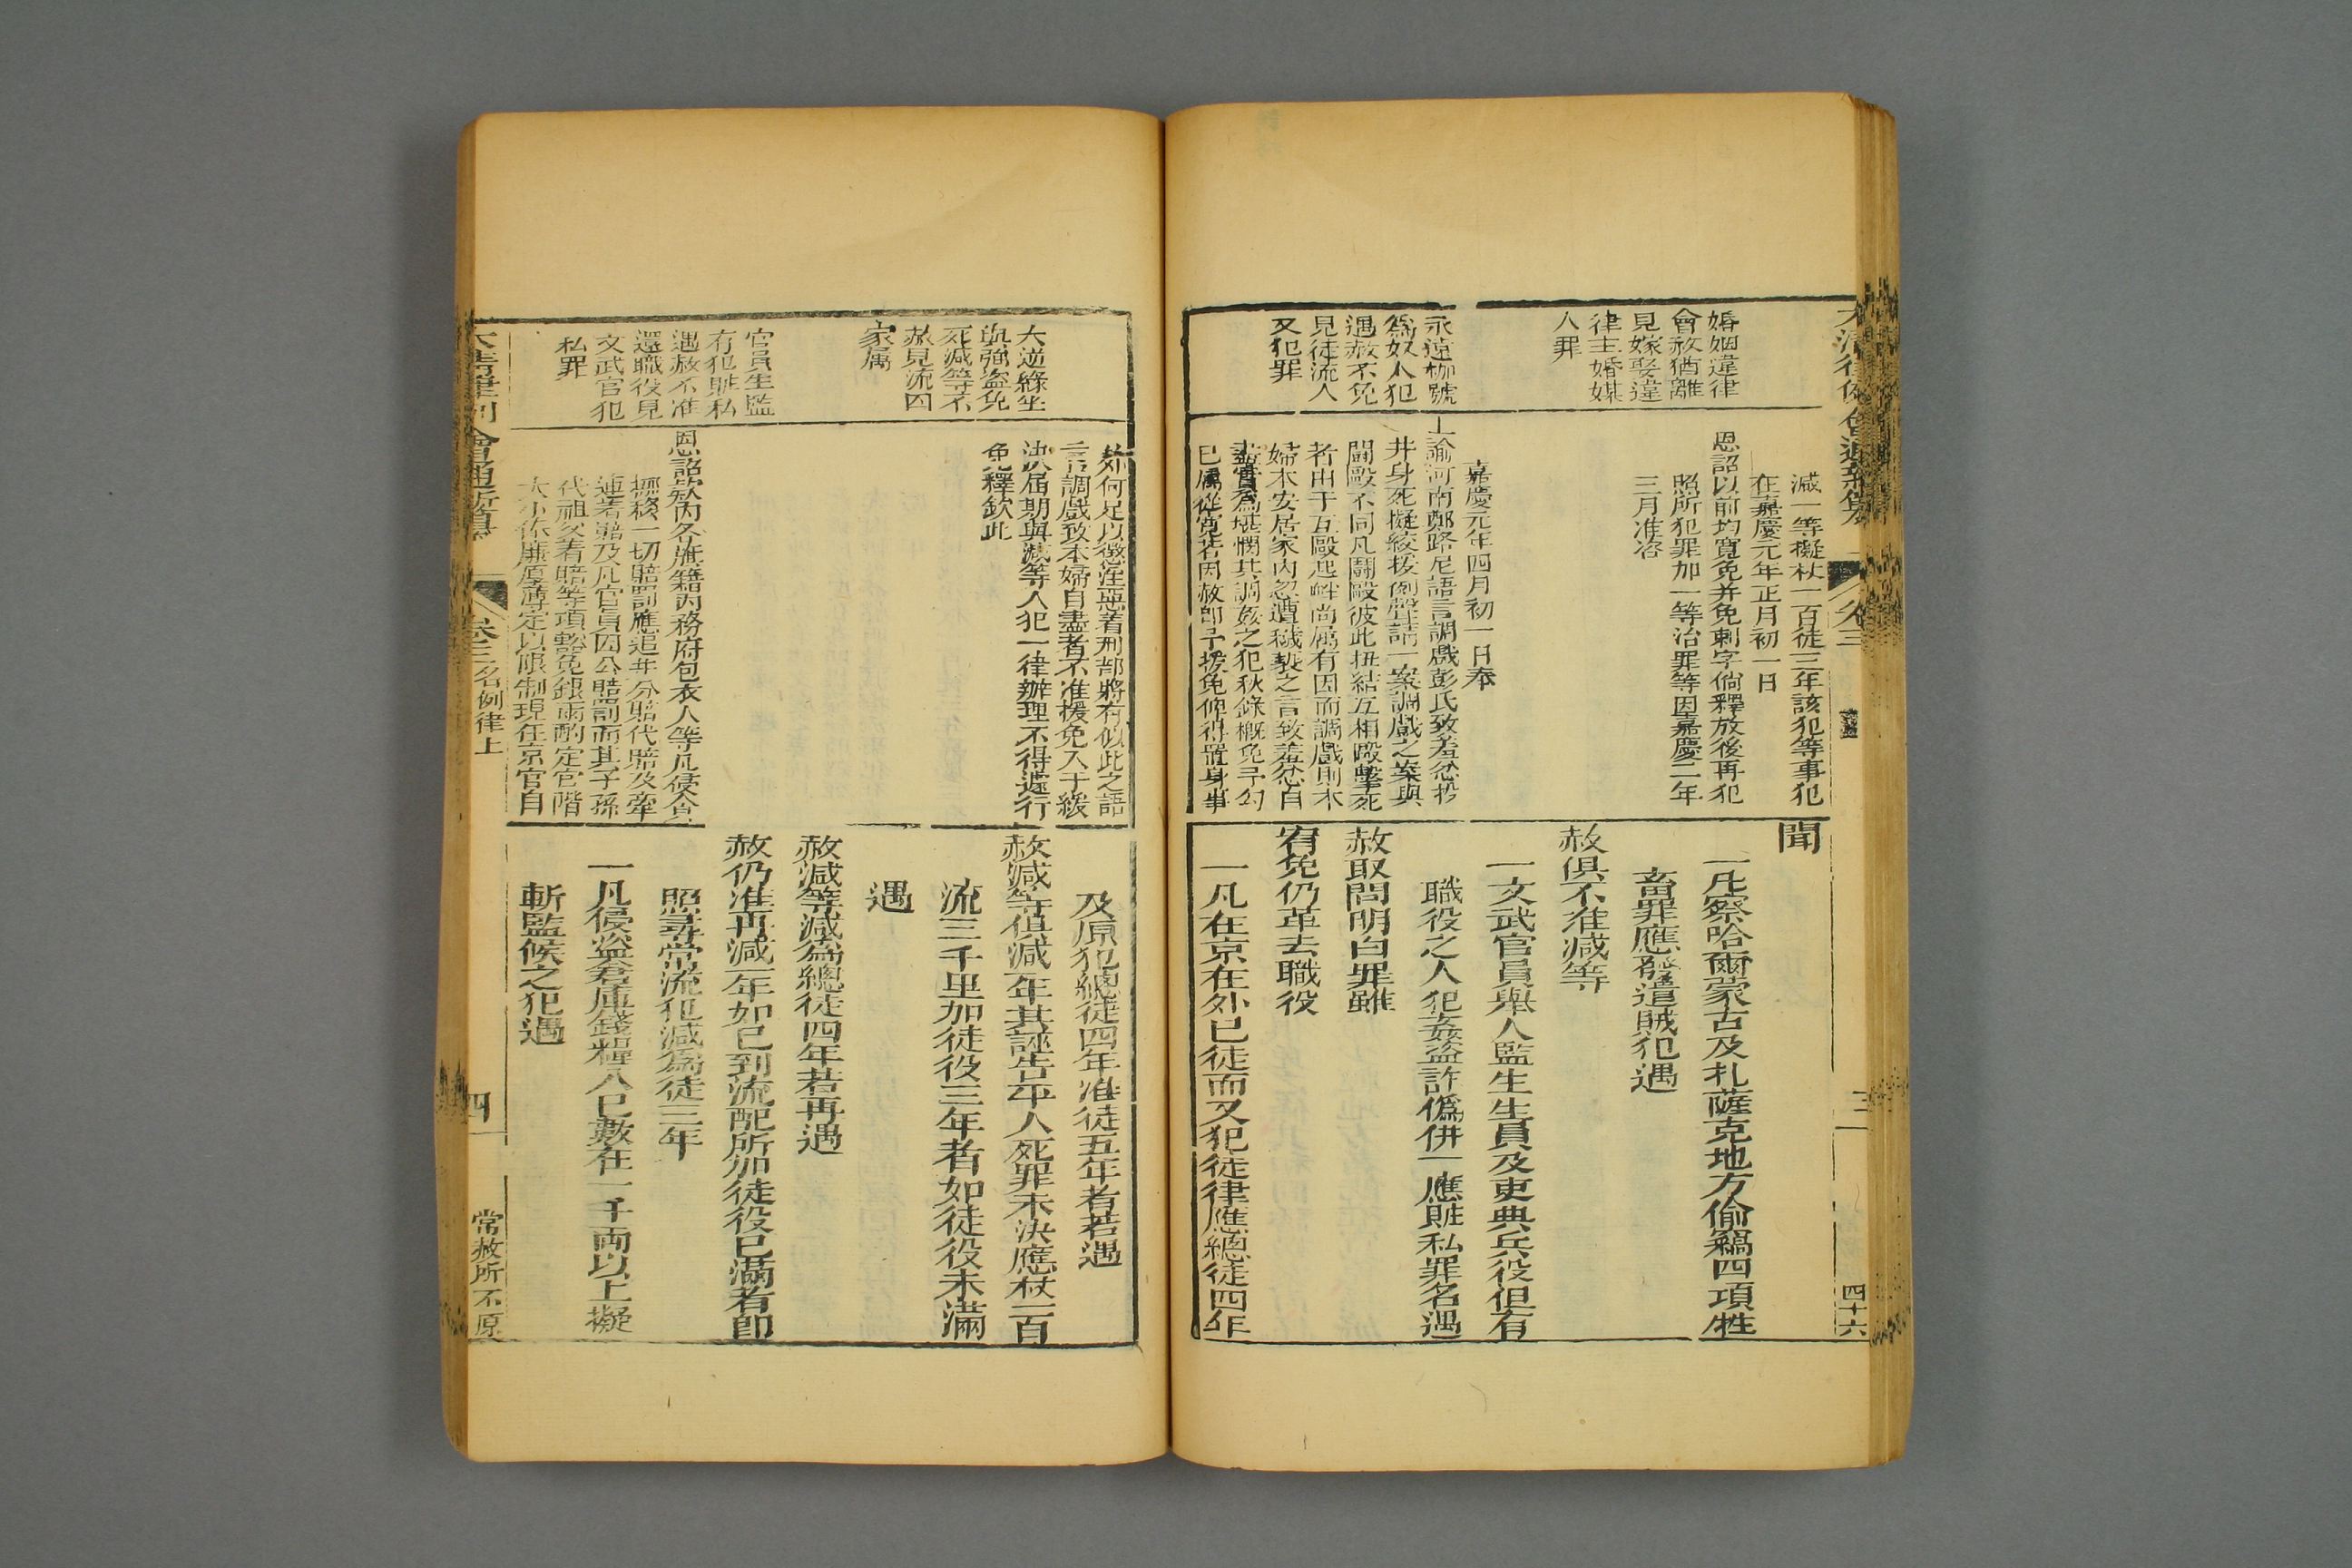 婚姻違律
會赦猶離
見嫁娶違
律主婚媒
人罪
永遠枷號
爲奴人犯
遇赦不免
見徒流人
又犯罪
減一等擬杖一百徒三年該犯等事犯
在嘉慶元年正月初一日
恩詔以前均寬免并免刺字倘釋放後再犯
照所犯罪加一等治罪等因嘉慶二年
三月准咨
嘉慶元年四月初一日奉
上諭河南鄭路尼語言調戲彭氏致羞忿投
井身死擬絞援例聲請一案調戲之案與
鬬毆不同凡鬬毆彼此扭結互相毆擊死
者出于互毆起衅尚屬有因而調戲則本
婦本安居家內忽遭穢褻之言致羞忿自
盡實爲堪憫其調姦之犯秋錄概免予勾
已屬從寬若因赦卽予援免俾得置身事
聞
一凡察哈爾蒙古及札薩克地方偷竊四項牲
畜罪應發遣賊犯遇
赦俱不准減等
一文武官員舉人監生生員及吏典兵役但有
職役之人犯姦盜詐僞併一應贓私罪名遇
赦取問明白罪雖
宥免仍革去職役
一凡在京在外已徒而又犯徒律應總徒四年
四十六
大逆緣坐
與強盜免
死減等不
赦見流囚
家属
官員生監
有犯贓私
遇赦不准
還職役見
文武官犯
私罪
外何足以懲淫惡着刑部將有似此之語
言調戲致本婦自盡者不准援免入于緩
決屆期與減等人犯一律辦理不得遽行
免釋欽此
恩詔欵內各旗籍內務府包衣人等凡侵貪
挪移一切賠罰應追年分賠代賠及牽
連著賠及凡官員因公賠罰而其子孫
代祖父着賠等項豁免銀兩酌定官階
大小作廉厚薄定以限制現任京官自
及原犯總徒四年准徒五年者若遇
赦減等俱減一年其誣告平人死罪未決應杖一百
流三千里加徒役三年者如徒役未滿
遇
赦減等減爲總徒四年若再遇
赦仍准再減一年如已到流配所加徒役已滿者卽
照尋常流犯減爲徒三年
一凡侵盜倉庫錢糧入已數在一千兩以上擬
斬監候之犯遇
大清律例會通新纂
卷三名例律上
四
常赦所不原